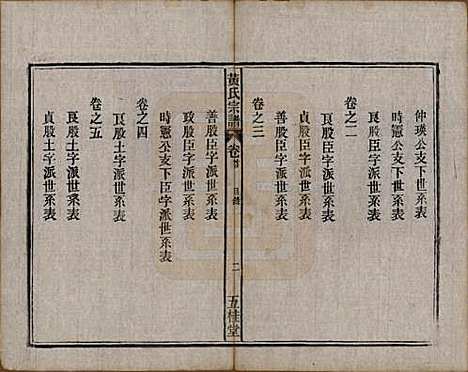 仲瑛公支下世系表
時憲公支下世系表
艮股世系表
卷之二
艮股臣字派世系表
貞股臣字派世系表
善股臣字派世系表
卷之三
黃氏宗譜
卷首
目錄
二
五桂堂
善股臣字派世系表
時憲公支下臣字派世系表
卷之四
艮股土字派世系表
卷之五
艮股土字派世系表
貞股土字派世系表